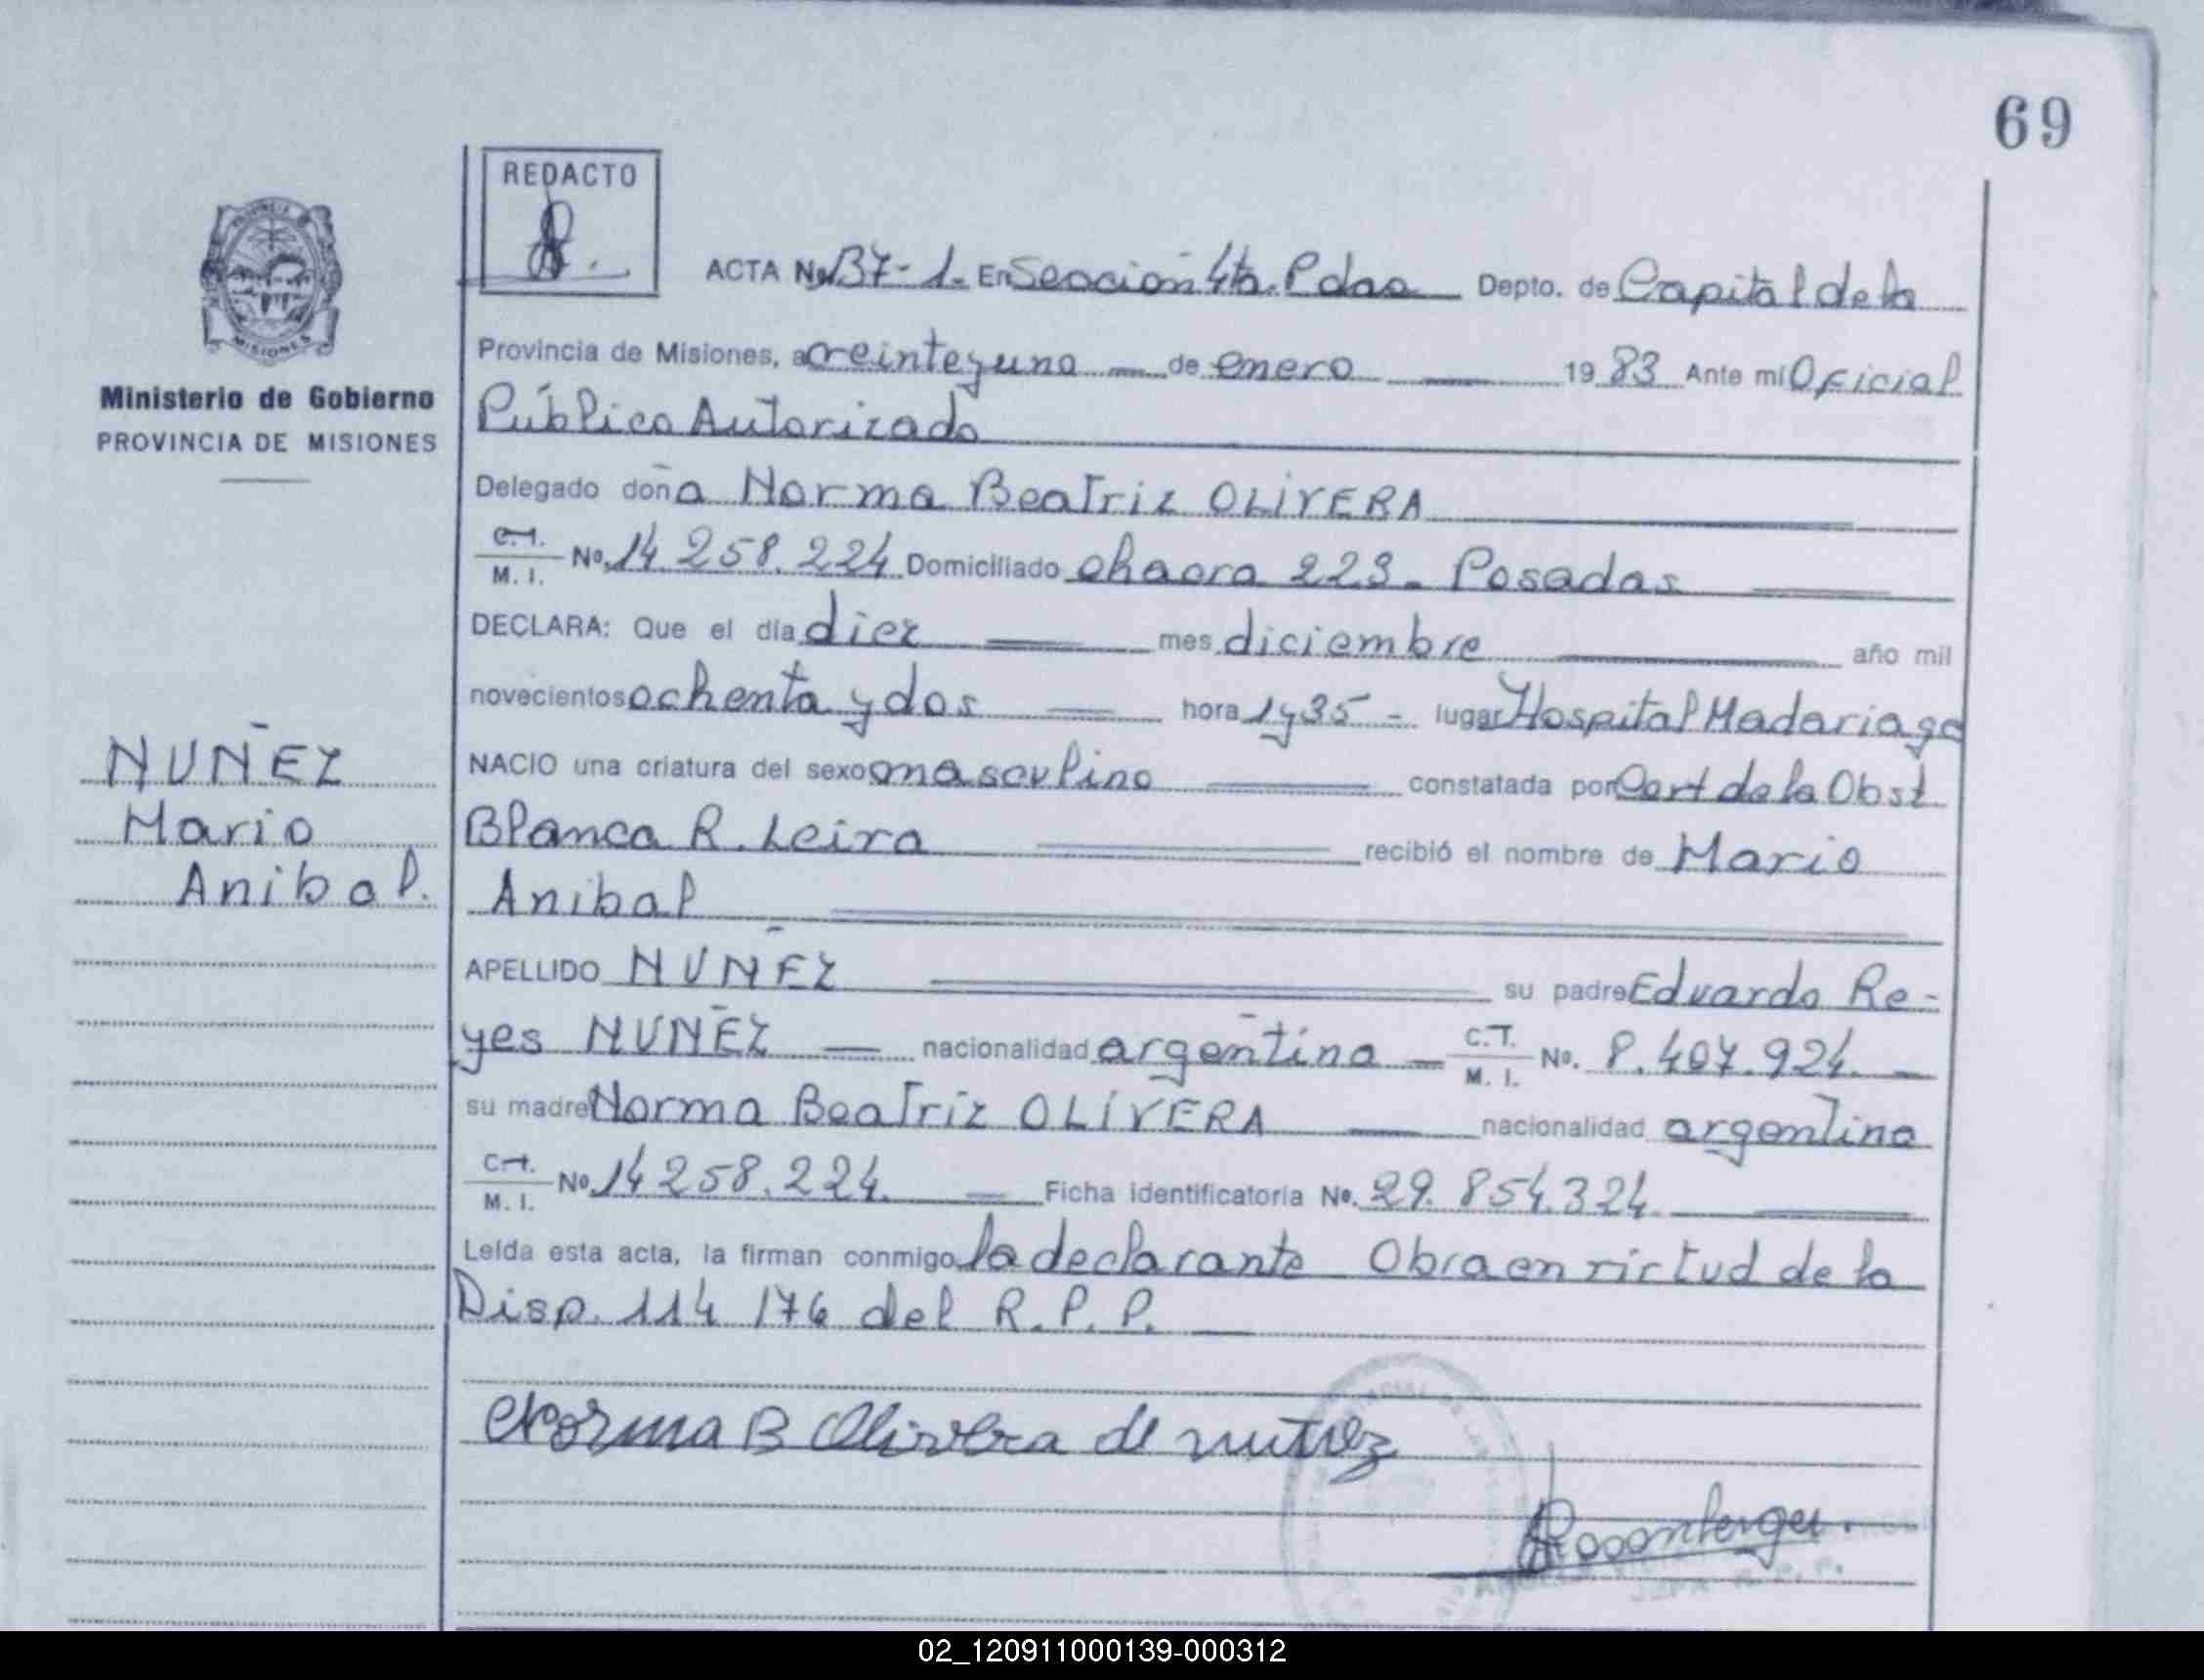 69
REDACTO
ACTA No 137-1- En Sección 4ta. Pdas Depto. de Capital de la
Provincia de Misiones, a veinteyuno de enero 1983 Ante mi Oficial
Público Autorizado
Ministerio de Gobierno
PROVINCIA DE MISIONES
Delegado doña Norma Beatriz OLIVERA
C.I. M. I. No. 14 258.224 Domiciliado chacra 223- Posadas
DECLARA: Que el día diez mes diciembre año mil
novecientos ochenta y dos hora 1y35 - lugar Hospital Madariaga
NACIO una criatura del sexo masculino constatada por Cert de la Obst
Blanca R. Leira recibió el nombre de Mario
Anibal
NUÑEZ
Mario
Anibal.
APELLIDO NUÑEZ su padre Eduardo Re-
yes NUÑEZ nacionalidad argentina C.T. M. I. No. 8.407.924.
su madre Norma Beatriz OLIVERA nacionalidad argentina
M. I. No. 14 258.224. Ficha identificatoria No. 29.854.324
Leída esta acta, la firman conmigo la declarante Obra en virtud de la
Disp. 114/76 del R.P.P.
Norma B Olivera de nuñez
JEFA R.P.P.
02_120911000139-000312